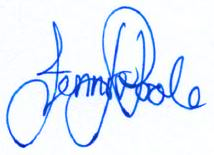 Jenny Poole